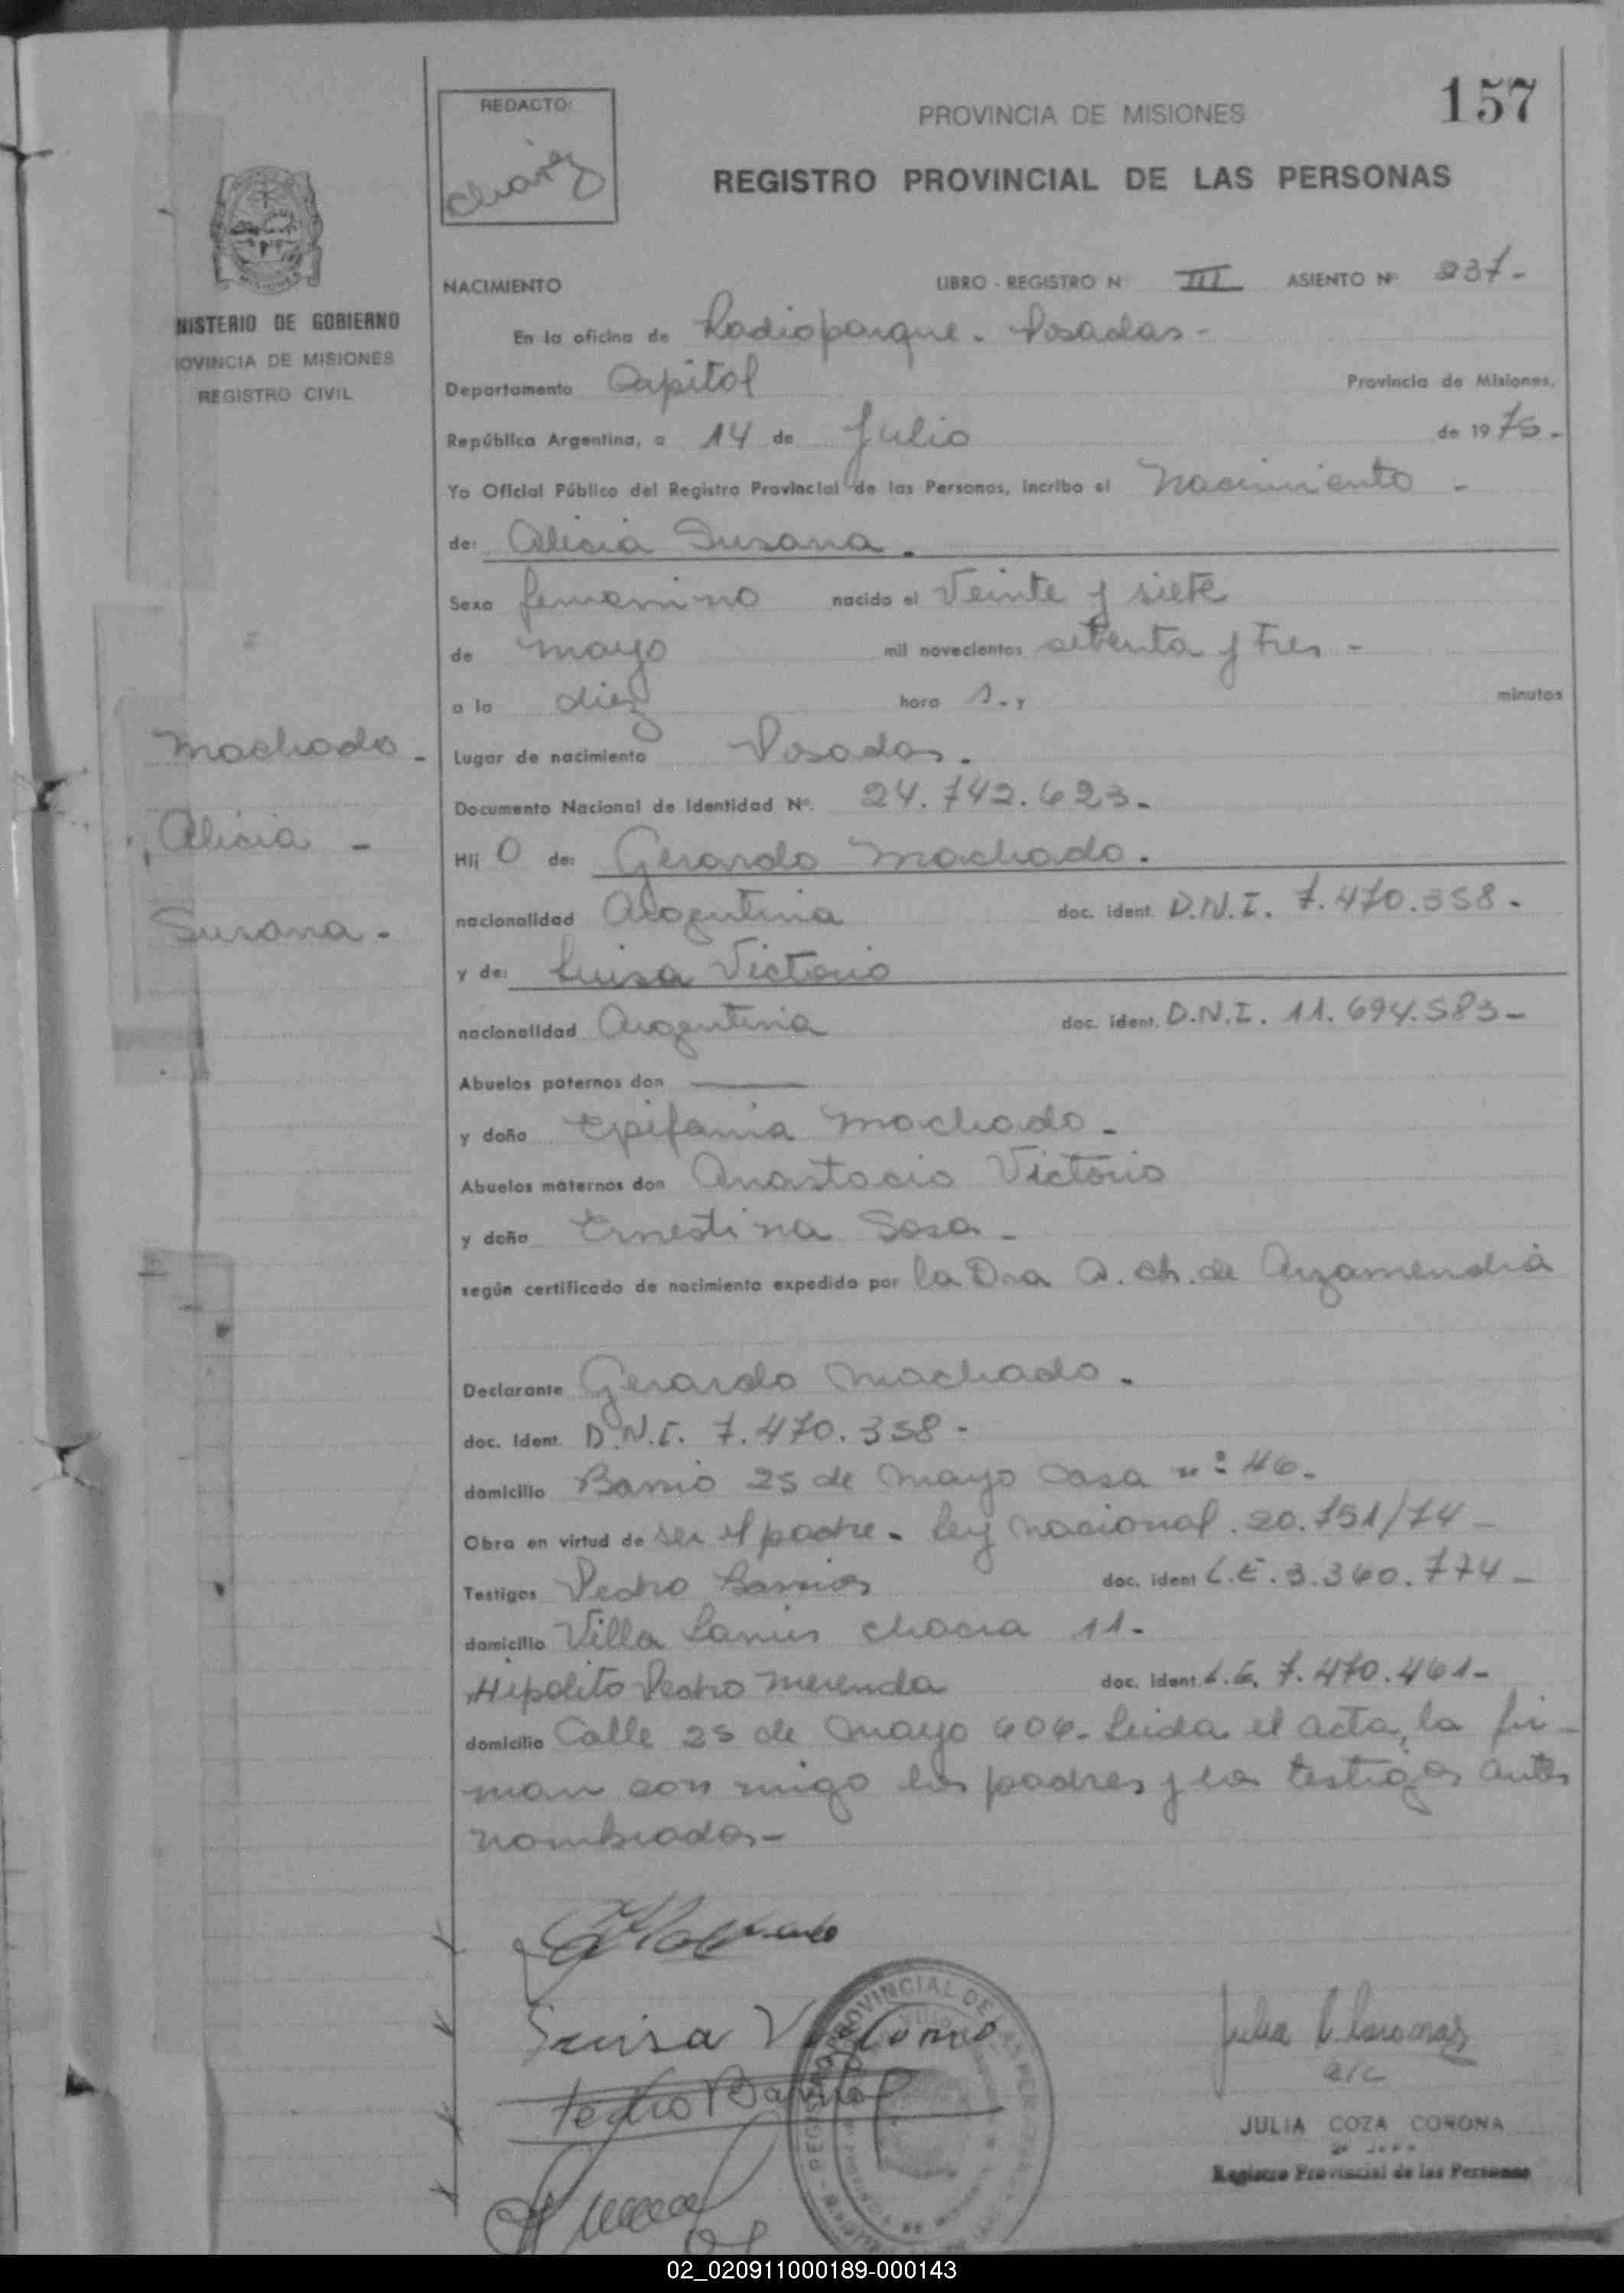 157
REDACTO:
Chavez
PROVINCIA DE MISIONES
REGISTRO PROVINCIAL DE LAS PERSONAS
NISTERIO DE GOBIERNO
IOVINCIA DE MISIONES
REGISTRO CIVIL
NACIMIENTO LIBRO - REGISTRO N° III ASIENTO Nº 237-
En la oficina de Radioparque. Posadas-
Departamento Capital Provincia de Misiones,
República Argentina, a 14 de Julio de 1975-
Yo Oficial Público del Registro Provincial de las Personas, incribo el Nacimiento -
de: Alicia Susana.
Sexo femenino nacido el Veinte y siete
de mayo mil novecientos setenta y tres -
a la diez hora s.- y minutos
Lugar de nacimiento Posadas.
Documento Nacional de Identidad Nº. 24.742.623-
Machado-
Alicia -
Susana-
Hij O de: Gerardo Machado.
nacionalidad Argentina doc. ident. D.N.I. 7.470.358-
y de: Luisa Victorio
nacionalidad Argentina doc. ident. D.N.I. 11.694.583-
Abuelos paternos don ———
y doña Epifania Machado-
Abuelos maternos don Anastacio Victorio
y doña Ernestina Sosa-
según certificado de nacimiento expedido por la Dra A. Ch. de Arzamendia
Declarante Gerardo Machado.
doc. Ident. D.N.I. 7.470.358-
domicilio Barrio 25 de Mayo Casa nº 46-
Obra en virtud de ser el padre. Ley Nacional. 20.751/74-
Testigos Pedro Barrios doc. ident L.E. 3.360.774-
domicilio Villa Lanus chacra 11-
Hipolito Pedro Merenda doc. Ident. L.E. 7.470.461-
domicilio Calle 25 de Mayo 606- Leida el acta, la fir-
man con migo los padres y los testigos antes
nombrados-
Luisa Victorio
Pedro Barrios
REGISTRO PROVINCIAL DE LAS PERSONAS
a/c
JULIA COZA CORONA
2º JEFE
Registro Provincial de las Personas
02_020911000189-000143